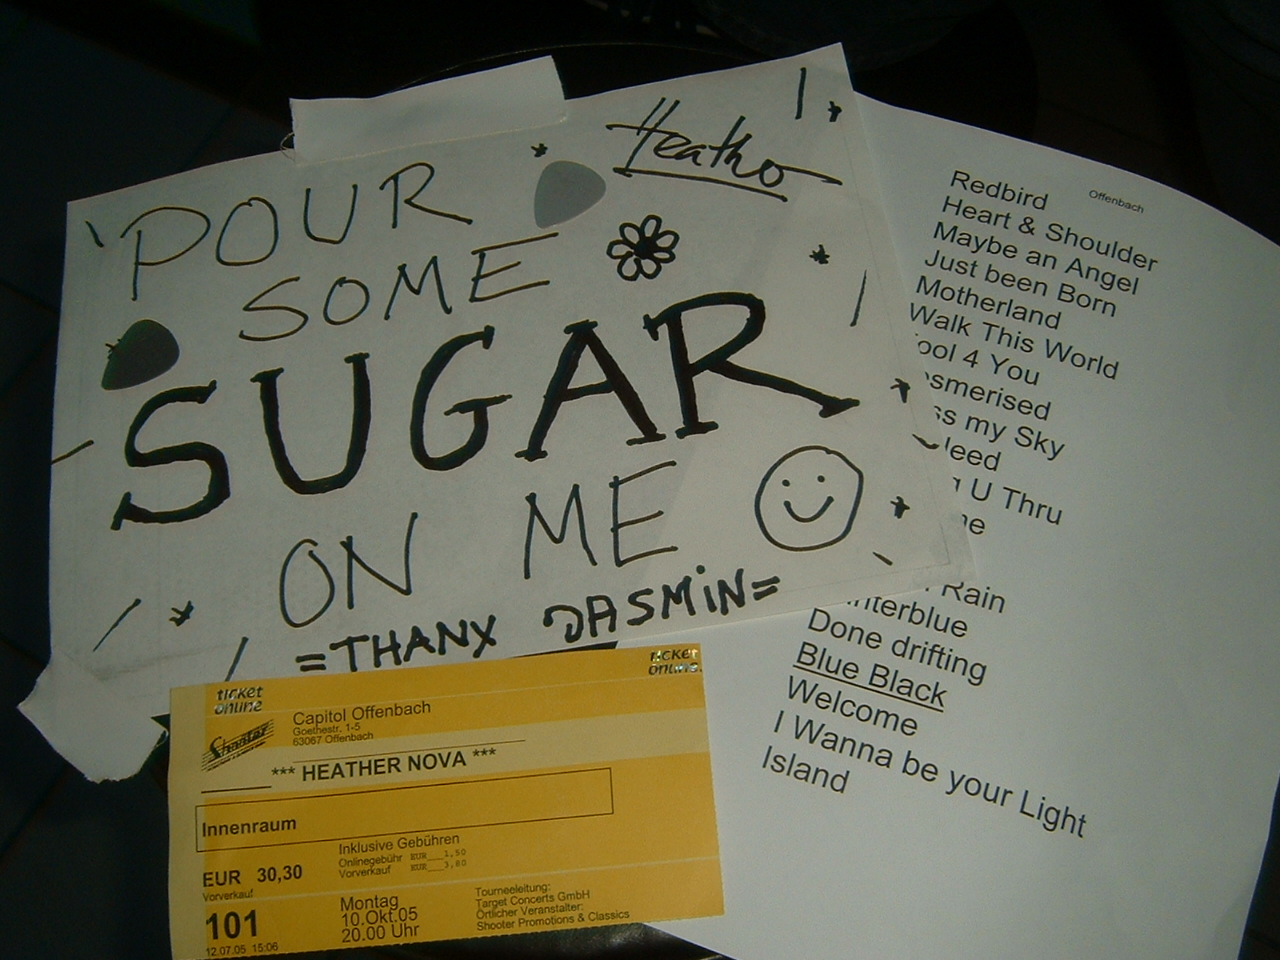 'POUR
SOME
SUGAR
ON ME
=THANX JASMiN=
Heather
Offenbach
Redbird
Heart & Shoulder
Maybe an Angel
Just been Born
Motherland
Walk This World
ool 4 You
smerised
ss my Sky
eed
U Thru
ne
Rain
nterblue
Done drifting
Blue Black
Welcome
I Wanna be your Light
Island
ticket online
ticket online.
Shooter
Capitol Offenbach
Goethestr. 1-5
63067 Offenbach
*** HEATHER NOVA ***
Innenraum
EUR 30,30
Vorverkauf
Inklusive Gebühren
Onlinegebühr EUR___1,50
Vorverkauf EUR___3,80
101
12.07.05 15:06
Montag
10.Okt.05
20.00 Uhr
Tourneeleitung:
Target Concerts GmbH
Örtlicher Veranstalter:
Shooter Promotions & Classics